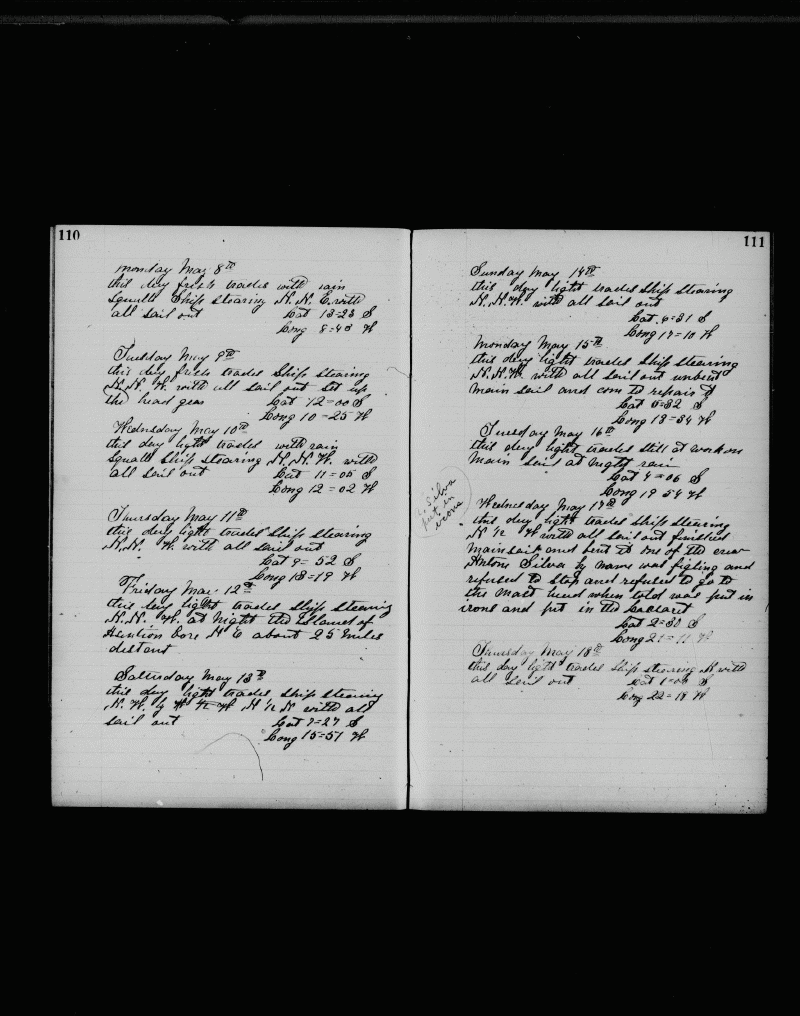 110
monday May 8th
this day fresh trades with rain
squalls Ship stearing N. N. E. with
all sail out Lat 13=23 S
Long 8=43 W
Tuesday May 9th
this day fresh trades Ship stearing
N. N. W. with all sail out set up
the head gear Lat 12=00 S
Long 10=25 W
Wednsday May 10th
this day light trades with rain
squalls Ship stearing N. N. W. with
all sail out Lat 11=05 S
Long 12=02 W
Thursday May 11th
this day light trades Ship stearing
N. N. W. with all sail out
Lat 9=52 S
Long 13=19 W
Friday May 12th
this day light trades Ship stearing
N. N. W. at Night the Island of
bore N E about 25 miles
distant
Saturday May 13th
this day light trades Ship stearing
N. W. by W 1/2 W N 1/2 N with all
sail out Lat 7=27 S
Long 15=51 W
111
Sunday May 14th
this day light trades Ship stearing
N. N. W. with all sail out
Lat 6=31 S
Long 17=10 W
Monday May 15th
this day light trades Ship stearing
N. N. W. with all sail out unbent
main sail and com to repair it
Lat 5=32 S
Long 18=34 W
Tuesday May 16th
this day light trades still at work on
main sail at night rain
Lat 4=06 S
Long 19 54 W
Silva
put in
irons
Wednesday May 17th
this day light trades Ship stearing
N 1/2 W with all sail out finished
mainsail and bent it one of the crew
Antone Silva by name was figting and
refused to stop and refused to go to
the mast head when told was put in
irons and put in the
Lat 2=30 S
Long 21=11 W
Thursday May 18th
this day light trades Ship stearing N with
all sail out Lat 1=06 S
Long 22=18 W